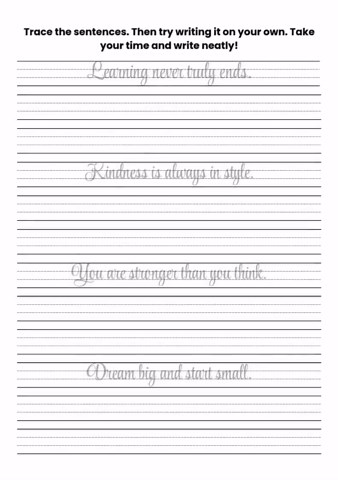 Trace the sentences. Then try writing it on your own. Take
your time and write neatly!
Learning never truly ends.
Kindness is always in style.
You are stronger than you think.
Dream big and start small.